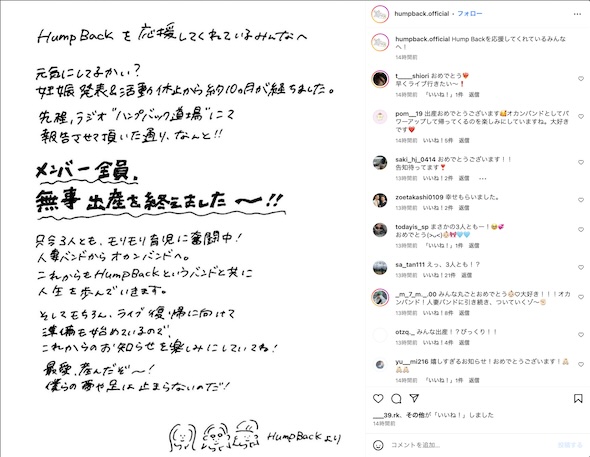 Hump Back を応援してくれているみんなへ
元気にしてるかい?
妊娠発表&活動休止から約10ヶ月が経ちました。
先程、ラジオ"ハンプバック道場"にて
報告させて頂いた通り、なんと!!
メンバー全員、
無事出産を終えました〜!!
只今3人とも、モリモリ育児に奮闘中!
人妻バンドからオカンバンドへ。
これからもHump Backというバンドと共に
人生を歩んでいきます。
そしてもちろん、ライブ復帰に向けて
準備も始めているので
これからのお知らせを楽しみにしていてね!
最愛、産んだぞ〜!
僕らの夢や足は止まらないのだ!
Hump Backより
humpback.official・フォロー
humpback.official Hump Backを応援してくれているみんな
へ!
t____shiori おめでとう❤️‍🔥
早くライブ行きたい〜!
14時間前 「いいね!」1件 返信
pom__19 出産おめでとうございます🥰オカンバンドとしてパ
ワーアップして帰ってくるのを楽しみにしていますね。大好き
です❤️
13時間前 いいね!5件 返信
saki_hj_0414 おめでとうございます!!
告知待ってます❣️
13時間前 いいね!2件 返信
zoetakashi0109 幸せもらいました。
13時間前 いいね!2件 返信
todayis_sp まさかの3人とも一!🥹💞
おめでとう(>⌄<)
13時間前 「いいね!」1件 返信
sa_tan111 えっ、3人とも!?
13時間前 いいね!21件 返信
_m_7_m_.00 みんな丸ごとおめでとう👶🏻♡大好き!!!オカ
ンバンド!人妻バンドに引き続き、ついていくゾ〜
13時間前 いいね!8件 返信
otzq._ みんな出産!?びっくり!!
13時間前 いいね!2件 返信
yu__mi216 嬉しすぎるお知らせ!おめでとうございます!
14時間前 「いいね!」1件 返信
___39.rk、その他が「いいね!」しました
14時間前
コメントを追加...
投稿する